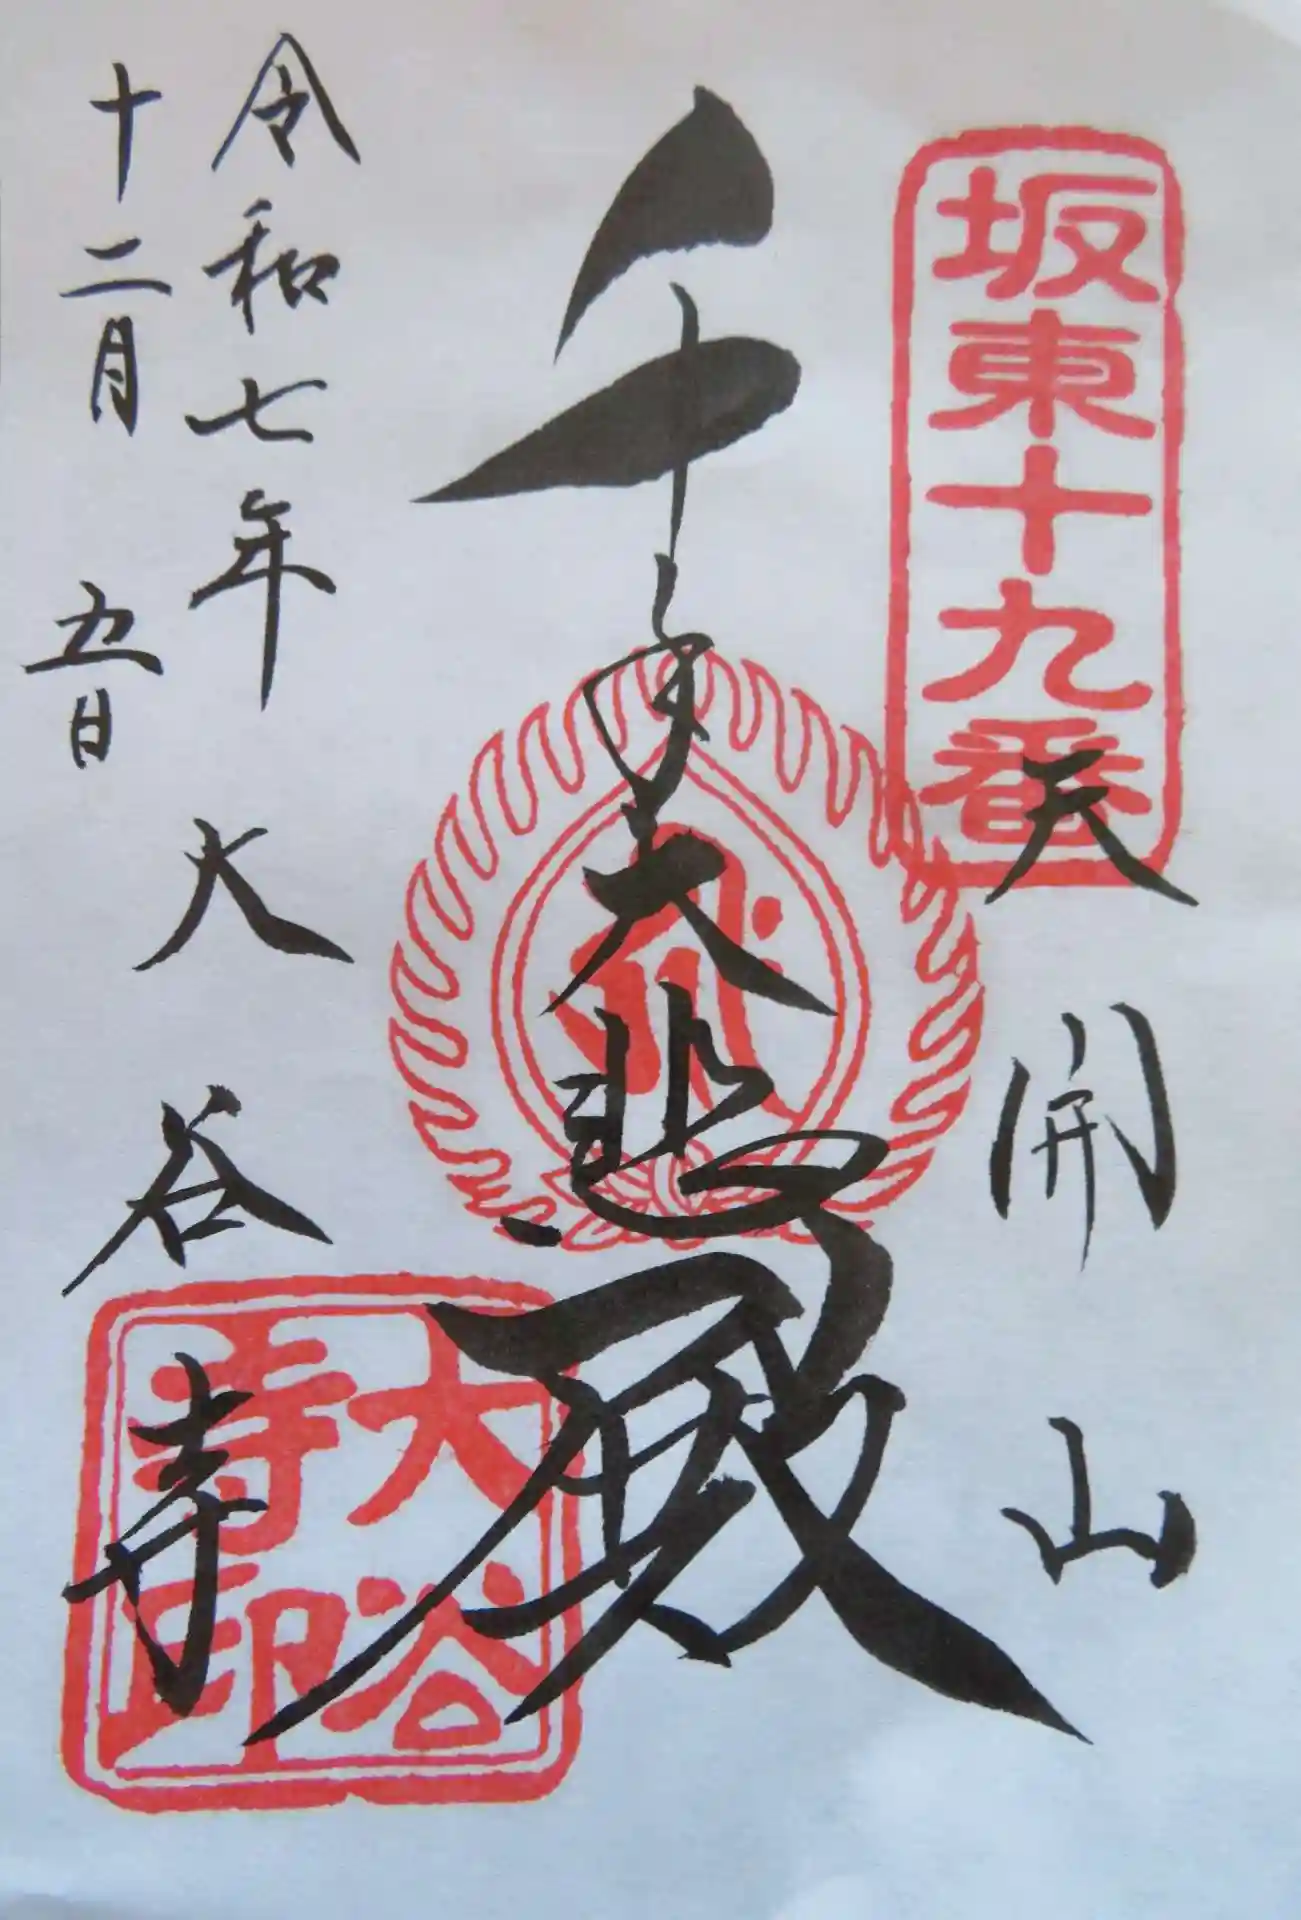 坂東十九番
天開山
千手大悲殿
大谷寺
大谷寺印
令和七年
十二月五日